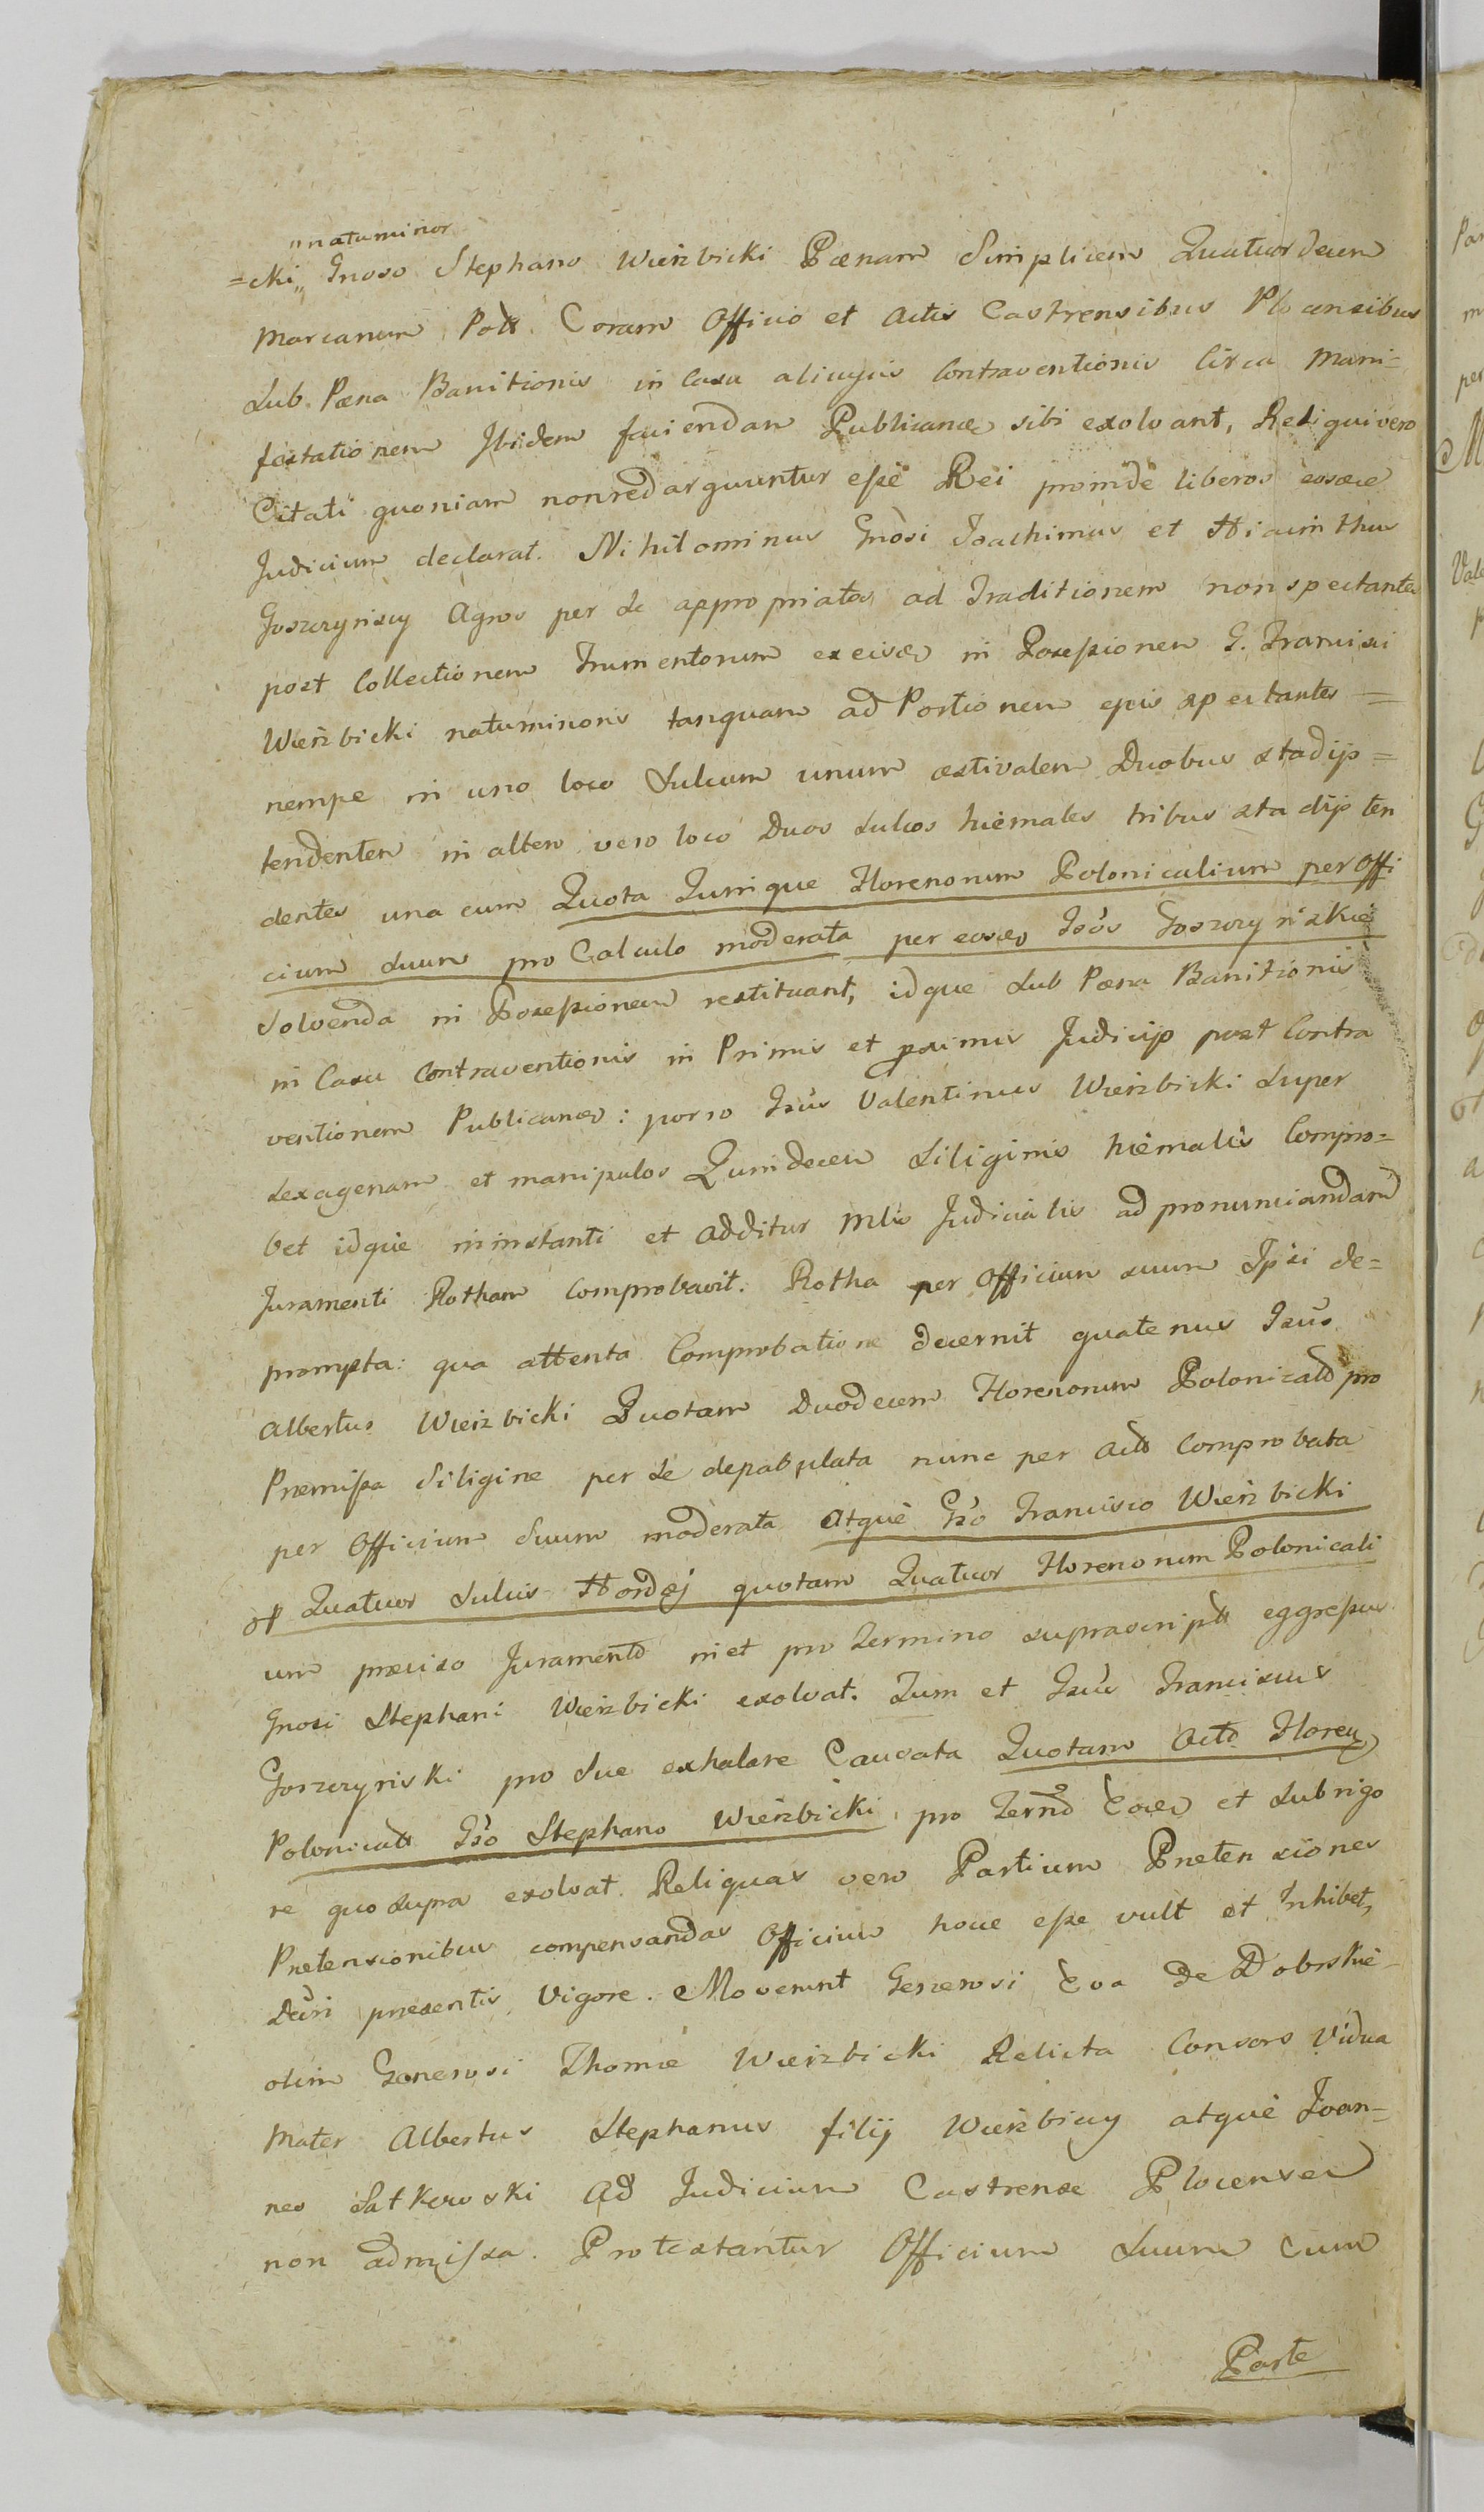 "natuminor
=cki,, Gnoso Stephano Wierzbicki Pænam Simplicem Quatuordecem
Marcarum Pollt. Coram Officio et Actis Castrensibus Plocensibus
Sub Pæna Banitionis in Casu alicujus Contraventionis Circa Mani=
festationem Ibidem faciendam Publicandæ sibi exolvant, Reliqui vero
Citati quoniam non redarguuntur esse Rei proinde liberos eosdem
Judicium declarat. Nihilominus Gnosi Joachimus et Hiacinthus
Goszczynscy Agros per Se appropriatos ad Traditionem non spectantes
post Collectionem Frumentorum ex eisdem in Possessionem G. Francisci
Wierzbicki natuminoris tanquam ad Portionem ejus spectantes =
nempe in uno loco Sulcum unum æstivalem Duobus stadijs =
tendentem in altero vero loco Duos Sulcos hiemales tribus stadijs ten
dentes una cum Quota Quinque Florenorum Polonicalium per Offi
cium Suum pro Calculo moderata per eosdem Gsos Goszczynskie
Solvenda in Possessionem restituant, idque Sub Pæna Banitionis
in Casu Contraventionis in Primis et proximis Judicijs post Contra
ventionem Publicandæ: porro Gsus Valentinus Wierzbicki Super
Sexagenam et manipulos Quindecem Siliginis hiemalis Compro=
bet idque ininstanti et additur Mlis Judicialis ad pronunciandam
Juramenti Rotham Comprobavit. Rotha per Officium suum Ipsi de=
prompta: qua attenta Comprobatione decernit quatenus Gsus
Albertus Wierzbicki Quotam Duodecem Florenorum Polonicald pro
Præmissa Siligine per Se depabulata nunc per Act Comprobata
per Officium Suum moderata Atque Gso Francisco Wierzbicki
Quatuor Sulcis Hordej quotam Quatuor Florenorum Polonicali
um præciso Juramento in et pro Termino suprascript eggressus
Gnosi Stephani Wierzbicki exolvat. Tum et Gsus Franciscus
Goszczynski pro Sue exhalare Causata Quotam Octo Floren
Polonicall Gso Stephano Wierzbicki pro Termno Eodem et Subrigo
re quo supra exolvat. Reliquas vero Partium Prætensiones
Prætensionibus compensandas Officium hocce esse vult et Inhibet,
Decri præsentis Vigore. Moverunt Generosi Eva de Dobrskie
olim Generosi Thomæ Wierzbicki Relicta Consors Vidua
Mater Albertus Stephanus filij Wierzbiccy atque Joan=
nes Satkowski Ad Judicium Castrense Plocense
non admissa. Protestantur Officium Suum Cum
Parte